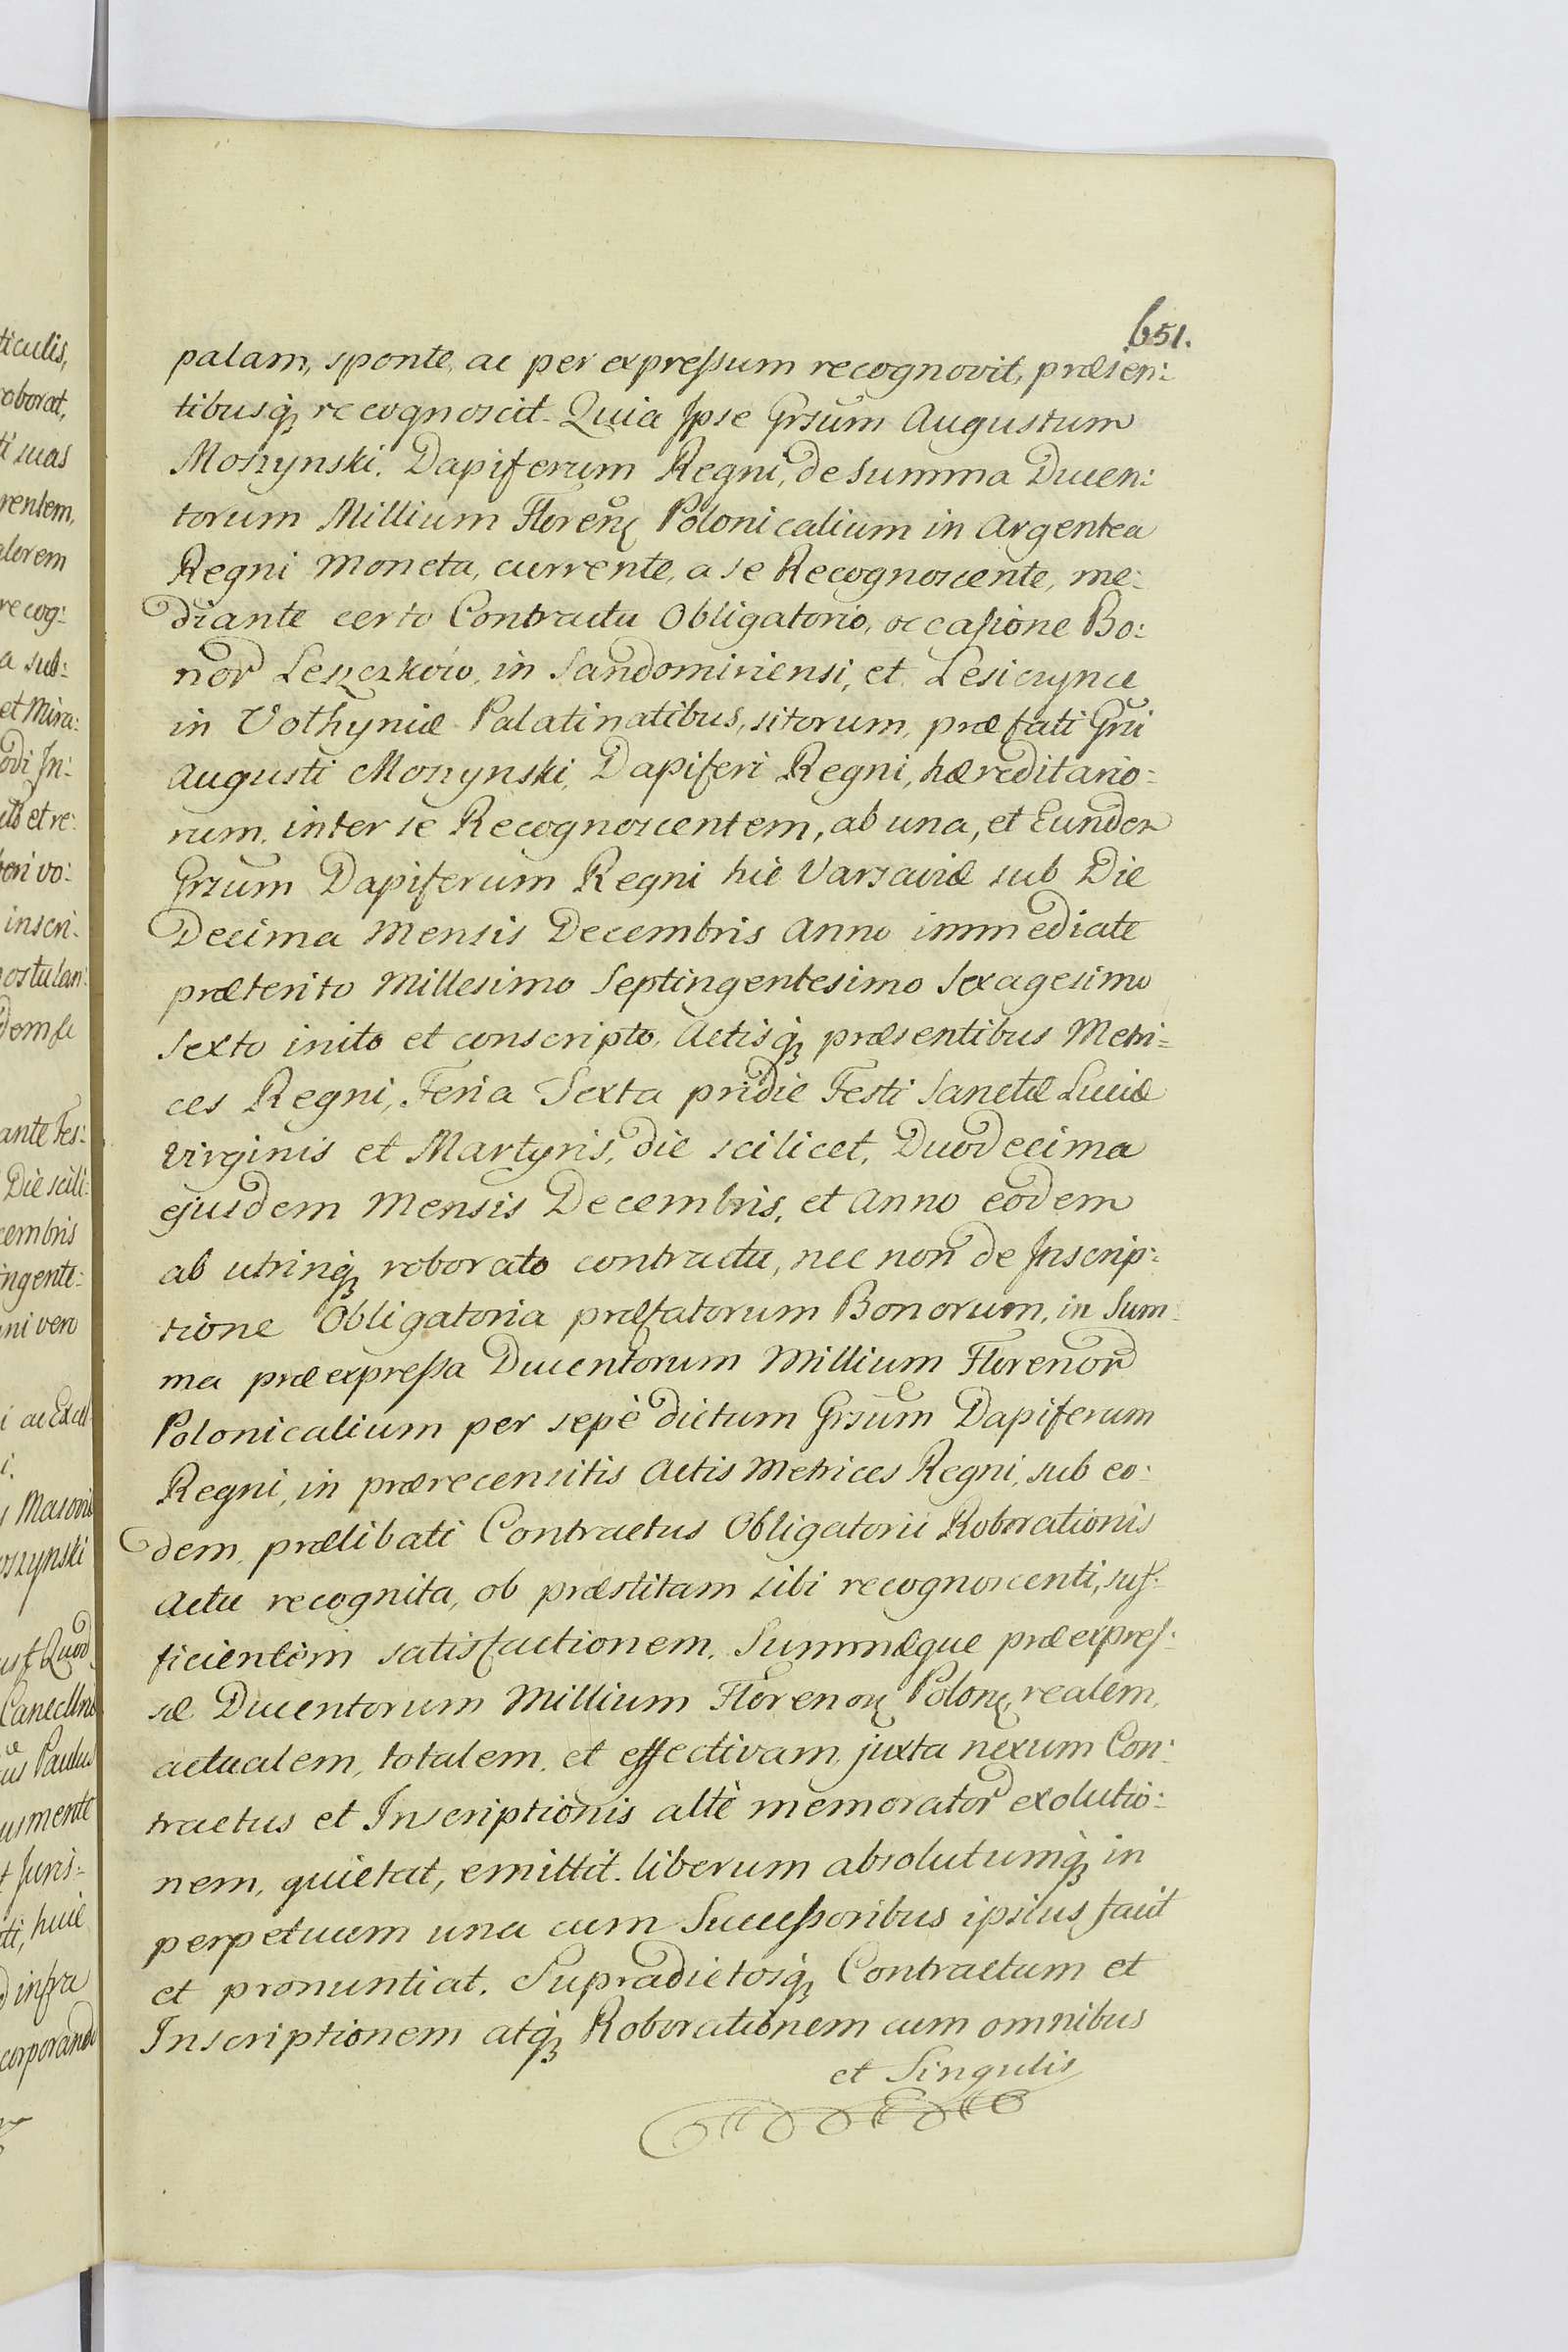 651.
palam, sponte, ac per expreſsum recognovit, præsen:
tibusq́ꝫ recognoscit. Quia Ipse Grsum Augustum
Moszynski. Dapiferum Regni, de Summa Ducen:
torum Millium Florenꝝ Polonicalium in Argentea
Regni Moneta, currente, a se Recognoscente, me:
diante certo Contractu Obligatorio, occaſione Bo:
nor Leszczkow, in Sandomiriensi, et Lesiczynce
in Volhyniæ Palatinatibus, sitorum, præfati Gsi
Augusti Moszynski, Dapiferi Regni, hæreditario=
rum, inter se Recognoscentem, ab una, et Eundem
Grsum Dapiferum Regni hic Varsaviæ sub Die
Decima Mensis Decembris Anno immediate
præterito Millesimo Septingentesimo Sexagesimo
Sexto inito et conscripto, Actisq́ꝫ præsentibus Metri=
ces Regni, Feria Sexta pridie Festi Sanctæ Luciæ
Virginis et Martyris, die scilicet, Duodecima
ejusdem Mensis Decembris, et Anno eodem
ab utrinq́ꝫ roborato contractu, nec non de Inscrip:
tione Obligatoria præfatorum Bonorum, in Sum:
ma præexpreſsa Ducentorum Millium Florenor
Polonicalium per sepè dictum Grsum Dapiferum
Regni, in prærecensitis Actis Metrices Regni, sub eo:
dem, prælibati Contractus Obligatorii Roborationis
Actu recognita, ob præstitam sibi recognoscenti, suf:
ficientem satisfactionem, Summæque præexpreſ:
sæ Ducentorum Millium Florenoꝝ Polonꝝ realem,
actualem, totalem, et effectivam, juxta nexum Con:
tractus et Inscriptionis altè memorator exolutio:
nem, quietat, emittit. liberum absolutumq́ꝫ in
perpetuum una cum Succeſsoribus ipsius facit
et pronuntiat. Supradictosq́ꝫ Contractum et
Inscriptionem atq́ꝫ Roborationem cum omnibus
et Singulis